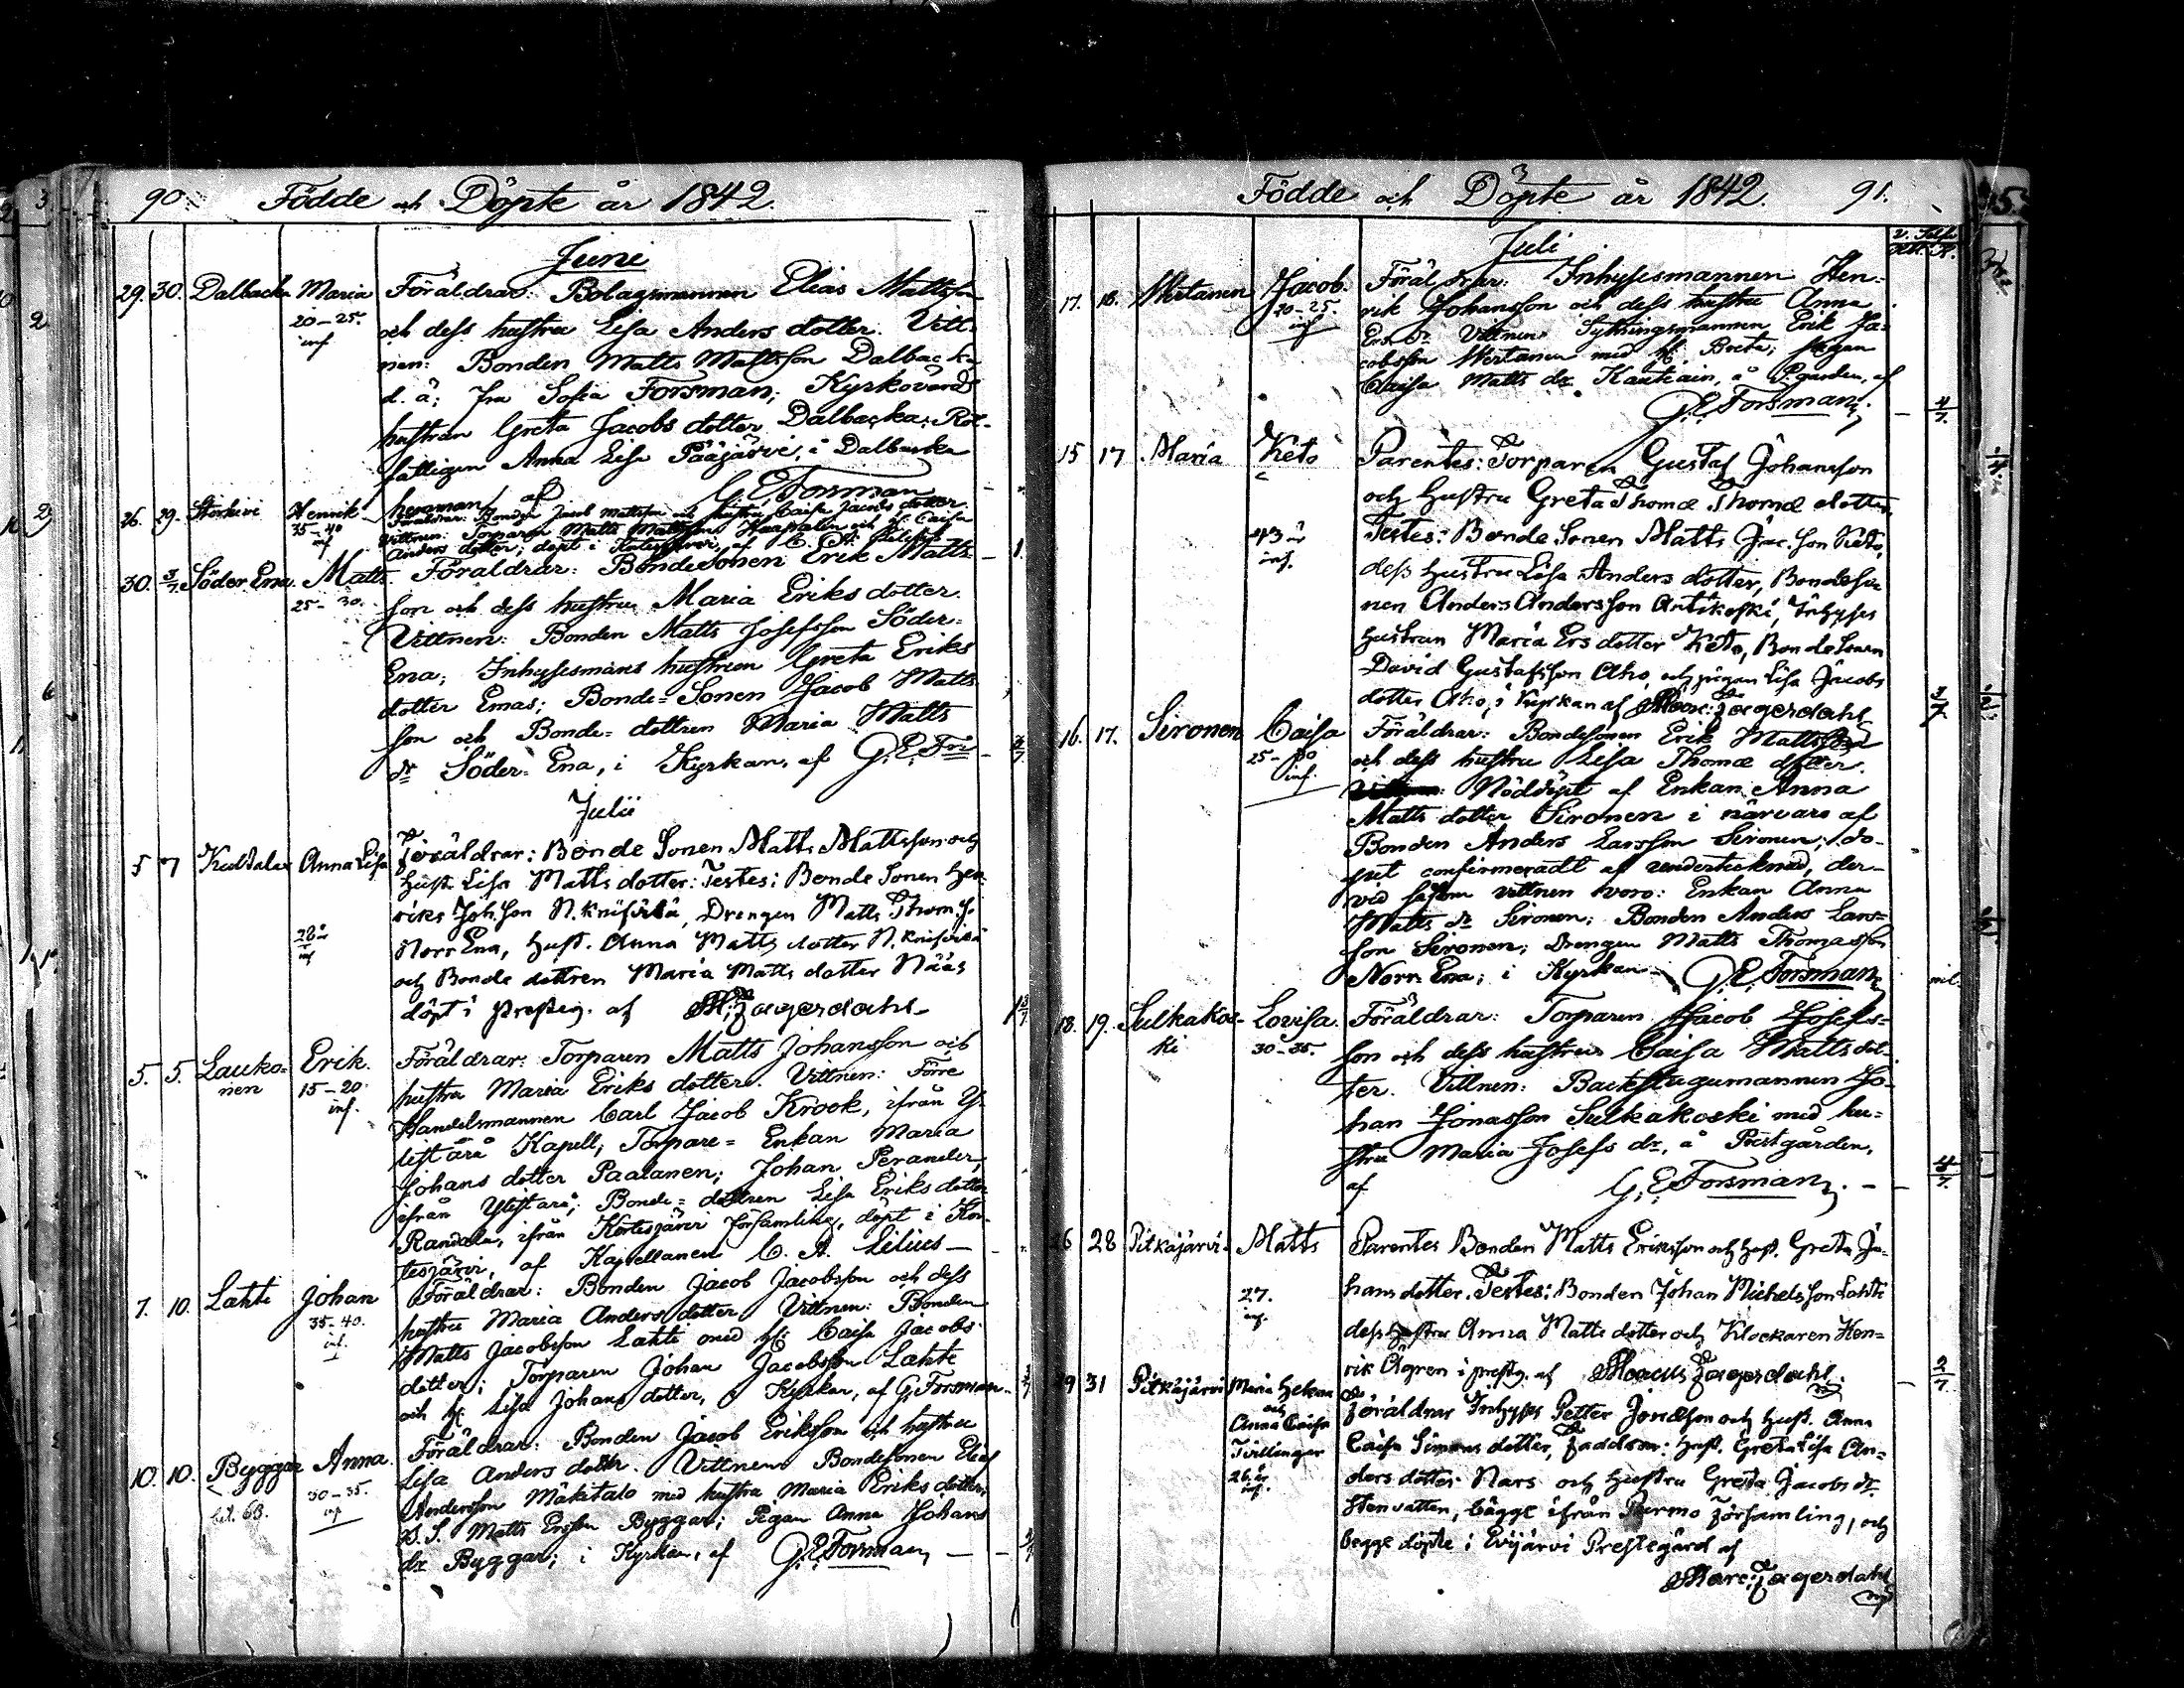 90. Födde och Döpte år 1842.
Juni
29. 30. Dalbacka Maria Föräldrar: Bolagsmannen Elias Mattsson
20-25. och dess hustru Lisa Anders dotter. Vitt-
inf nen: Bonden Matts Mattsson Dalbacka
d. ä; Fru Sofia Forsman; Kyrkovärds
hustrun Greta Jacobs dotter Dalbacka; Rot-
fattigen Anna Lisa Pääjärvi, å Dalbacka
hemman, af G. E. Forsman
26. 29. Henrik Föräldrar: Bonden Jacob Mattsson och hustru Caisa Jacobs dotter.
35-40 Vittnen: Torparen Matts Mattsson och hf Caisa
inf Anders dotter; döpt i af C. A. Lilius
30. 3/7. Söder Ena. Matts. Föräldrar: Bondesonen Erik Matts-
25-30. son och dess hustru Maria Eriks dotter.
Vittnen: Bonden Matts Josefsson Söder-
Ena; Inhysesmans hustrun Greta Eriks
dotter Emas; Bonde-Sonen Jacob Matts
son och Bonde-dottren Maria Matts
dr Söder-Ena, i Kyrkan, af G. E. Fors
Julii
5 7 Anna Lisa Föräldrar: Bonde Sonen Matts Mattsson och
Hust. Lisa Matts dotter: Testes: Bonde Sonen Hen-
riks Joh.son N. Knifsilä, Drengen Matts Thom.s.
28 år Norr Ena, Hust. Anna Matts dotter N. Knifsilä
inf och Bonde dottren Maria Matts dotter Nääs
döpt i prestg. af M. Jagerdahl
5. 5. Lauko- Erik. Föräldrar: Torparen Matts Johansson och
nen 15-20. hustru Maria Eriks dotter. Vittnen: Förre
inf. Handelsmannen Carl Jacob Krook, ifrån Y-
listarå Kapell; Torpare-Enkan Maria
Johans dotter Paalanen; Johan Perander,
ifrån Ylistarå; Bonde-dottren Lisa Eriks dotter
Randala, ifrån Kortesjärvi församling, döpt i Kor-
tesjärvi, af Kapellanen C. A. Lilius
7. 10. Lahti Johan Föräldrar: Bonden Jacob Jacobsson och dess
35-40. hustru Maria Anders dotter. Vittnen: Bonden
inf. Matts Jacobsson Lahti med hf. Caisa Jacobs
dotter; Torparen Johan Jacobsson Lahti
och hf. Lisa Johans dotter, i Kyrkan, af G. Forsman
10. 10. Byggar Anna. Föräldrar: Bonden Jacob Eriksson och hustru
30-35. Lisa Anders dotter. Vittnen: Bondesonen Elias
inf Andersson Mäkitalo med hustru Maria Eriks dotter;
B. S. Matts Ersson Byggar; Pigan Anna Johans
dr Byggar; i Kyrkan, af G. E. Forsman
Födde och Döpte år 1842. 91.
Juli
17. 18. Jacob. Föräldrar: Inhysesmannen Hen-
20-25. rik Johansson och dess hustru Anna
inf Ers dr Vittnen: Sytningsmannen Erik Ja-
cobsson med hf. Breta; pigan
Caisa Matts dr Kautiain, å P.gården, af
G. E. Forsman. 4/7.
15 17 Maria Keto Parentes: Torparen Gustaf Johansson
och Hustru Greta Thomæ Thomæ dotter
43 år Testes: Bonde Sonen Matts Jac.son Keto,
inf. dess hustru Lisa Anders dotter, Bondeso-
nen Anders Andersson Antikoski, Inhyses
hustrun Maria Ers dotter Keto, Bonde Sonen
David Gustafsson Aho, och pigan Lisa Jacobs
dotter Aho, i Kyrkan af Marc: Jagerdahl 3/7
16. 17. Sironen Caisa Föräldrar: Bondesonen Erik Mattsson
25-30 och dess hustru Lisa Thomæ dotter.
inf. Nöddöpt af Enkan Anna
Matts dotter Sironen i närvaro af
Bonden Anders Larsson Sironen; do-
pet confirmeradt af undertecknad, der-
vid såsom vittnen voro: Enkan Anna
Matts dr Sironen; Bonden Anders Lars-
son Sironen; Drengen Matts Thomasson
Norr-Ena; i Kyrkan G. E. Forsman
18. 19. Sulkakos- Lovisa. Föräldrar: Torparen Jacob Josefs-
ki 30-35. son och dess hustru Caisa Matts dot-
ter. Vittnen: Backstugumannen Jo-
han Jonasson Sulkakoski med hu-
stru Maria Josefs dr, å Prestgården,
af G. E. Forsman. 4/7.
26 28 Pitkäjärvi Matts Parentes Bonden Matts Eriksson och Hust. Greta Jo-
27. hans dotter. Testes: Bonden Johan Michelsson Lahti
inf. dess hustru Anna Matts dotter och Klockaren Hen-
rik Ågren i prestg. af Marcus Jagerdahl. 2/7.
29 31 Pitkäjärvi Maria Helena Föräldrar Inhyses Petter Jonasson och Hust. Anna
och
Anna Caisa Caisa Simons dotter, Faddrar: Hust. Greta Lisa An-
Tvillingar ders dotter Nars och Hustru Greta Jacobs dr
26 år Stenvatten, bägge ifrån Purmo Församling, och
inf. begge döpte i Evijärvi Prestegård af
Marc: Jagerdahl